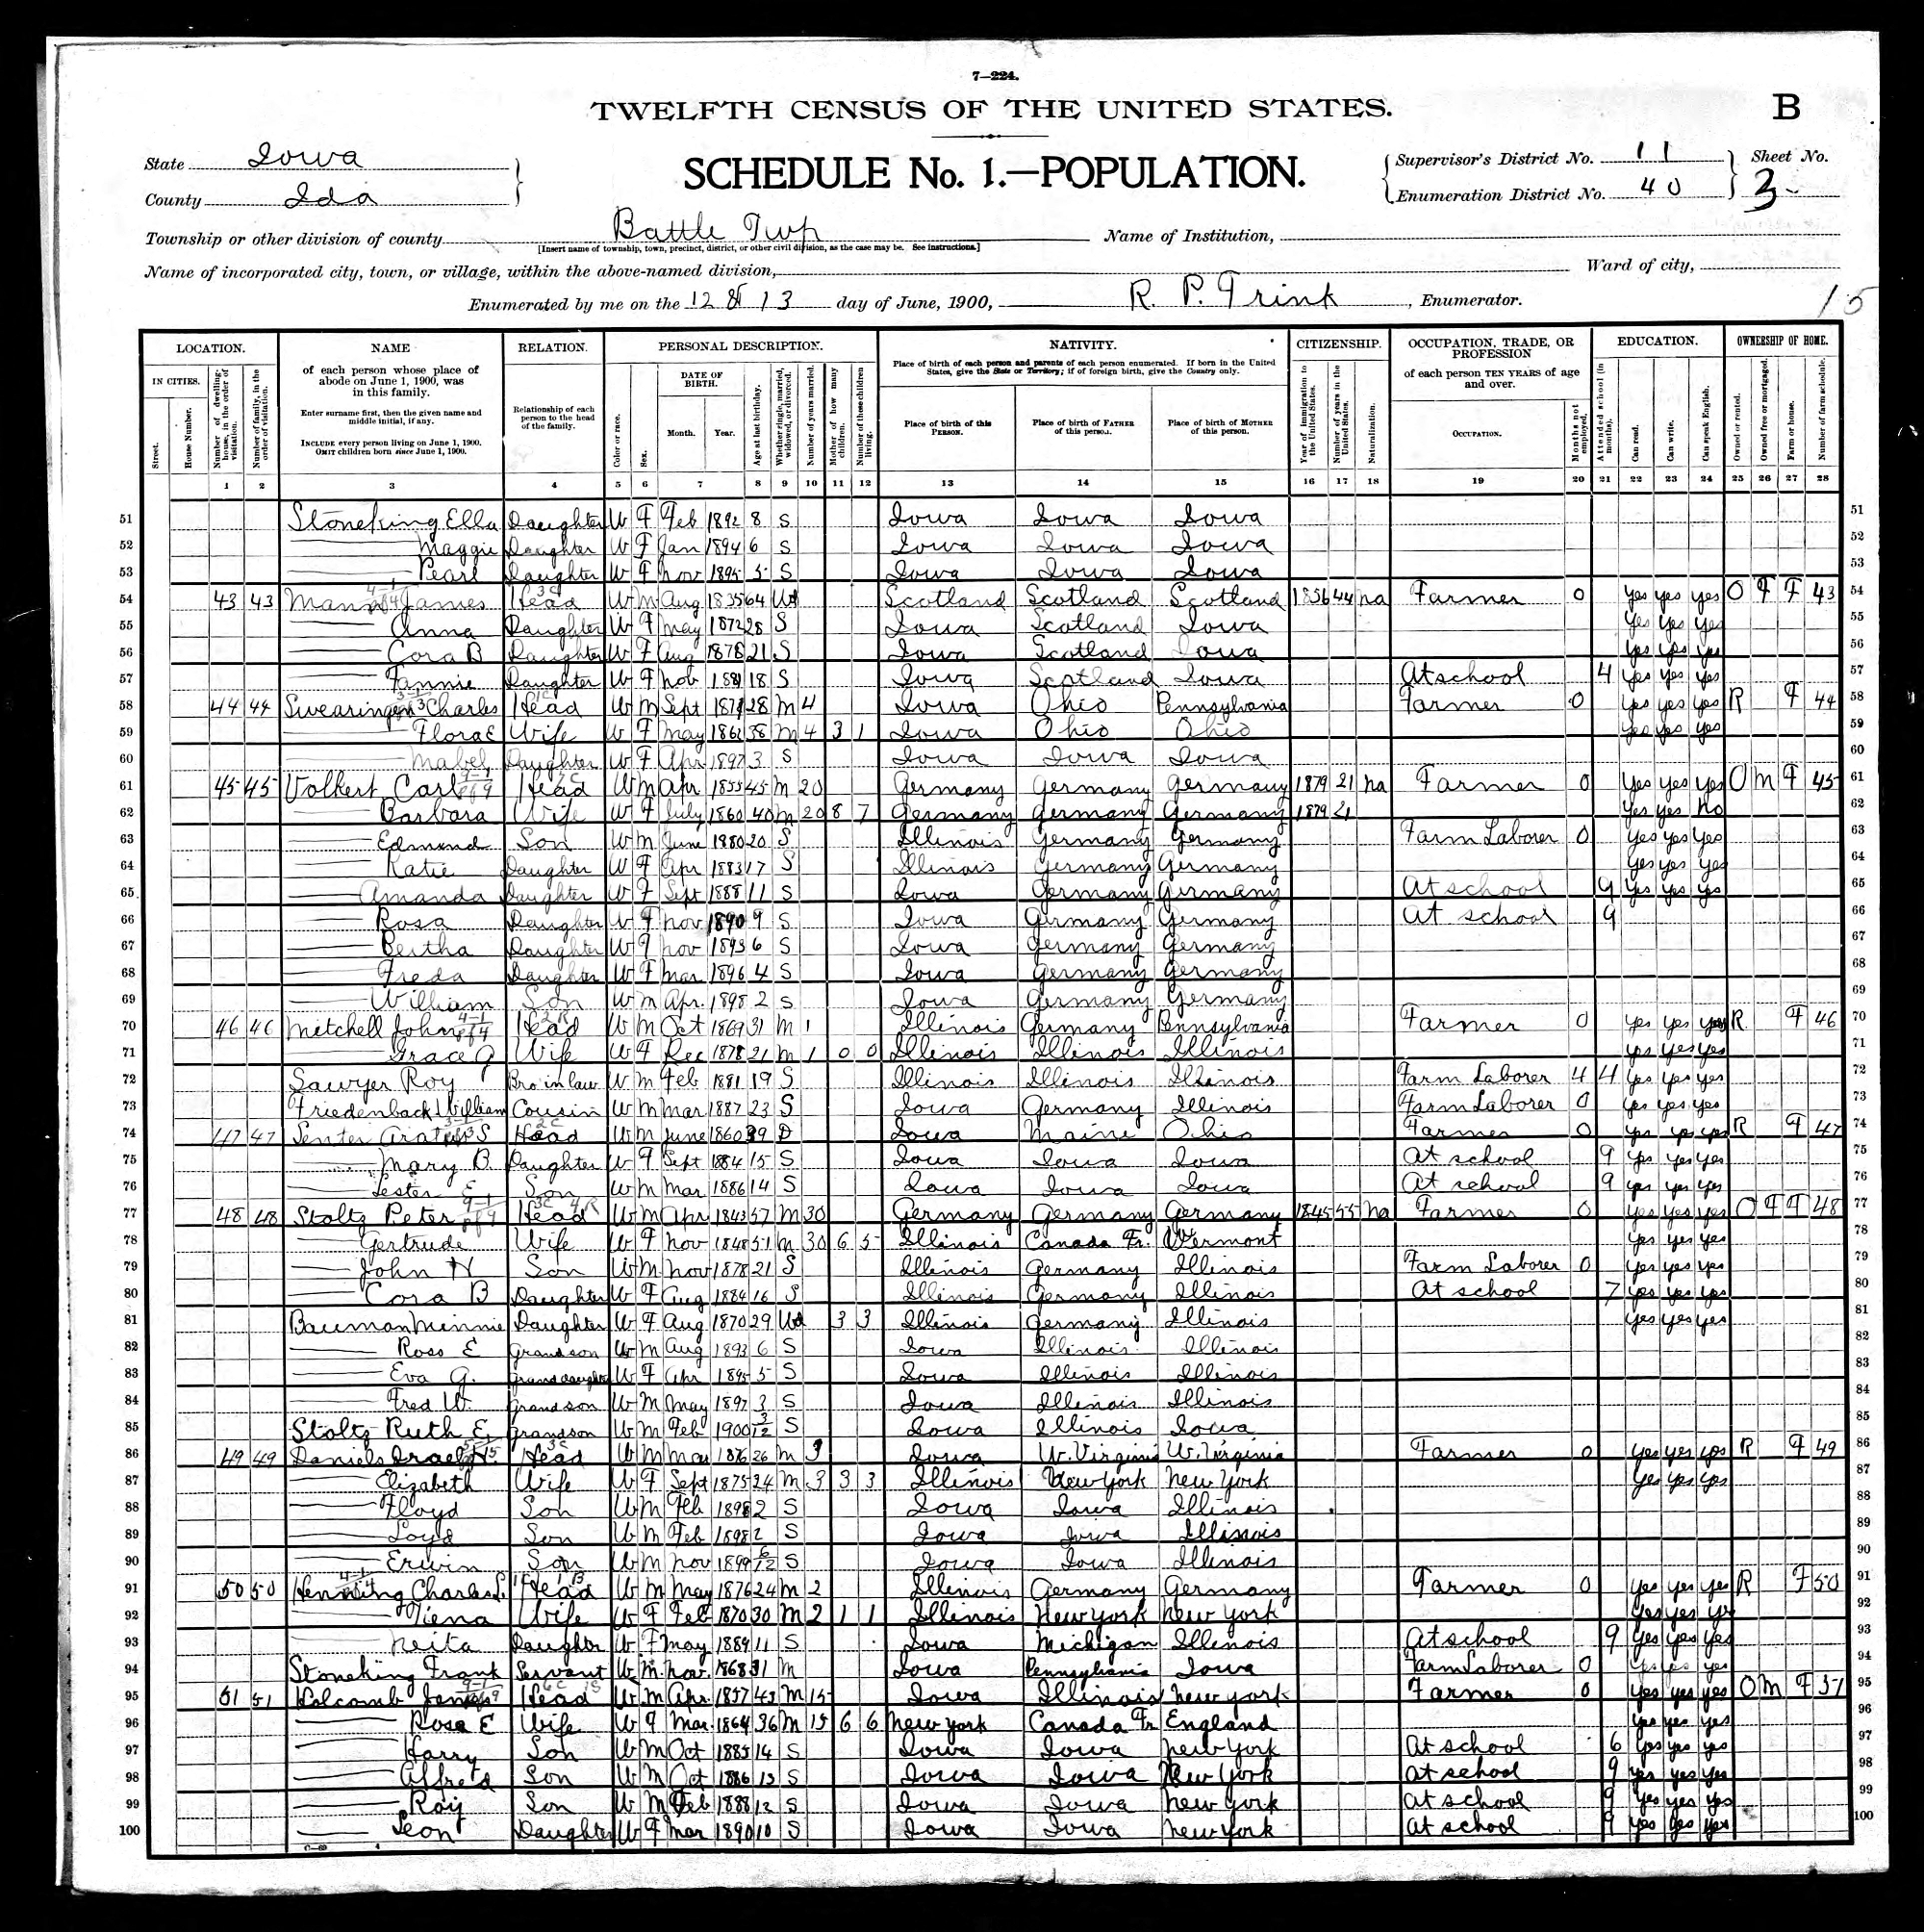 7—224.
TWELFTH CENSUS OF THE UNITED STATES.
B
State Iowa
County Ida
SCHEDULE No. 1.—POPULATION.
Supervisor's District No. 11
Enumeration District No. 40
Sheet No.
3
Township or other division of county Battle Twp
[Insert name of township, town, precinct, district, or other civil division, as the case may be. See instructions.]
Name of Institution,
Name of incorporated city, town, or village, within the above-named division,
Ward of city,
Enumerated by me on the 12 & 13 day of June, 1900, R. P. Trink, Enumerator.
LOCATION. NAME RELATION. PERSONAL DESCRIPTION. NATIVITY. CITIZENSHIP. OCCUPATION, TRADE, OR PROFESSION EDUCATION. OWNERSHIP OF HOME.
IN CITIES. Street. House Number. Number of dwelling-house, in the order of visitation. Number of family, in the order of visitation.
of each person whose place of abode on June 1, 1900, was in this family.
Enter surname first, then the given name and middle initial, if any.
INCLUDE every person living on June 1, 1900. OMIT children born since June 1, 1900.
Relationship of each person to the head of the family.
Color or race. Sex. DATE OF BIRTH. Month. Year. Age at last birthday. Whether single, married, widowed, or divorced. Number of years married. Mother of how many children. Number of these children living.
Place of birth of each person and parents of each person enumerated. If born in the United States, give the State or Territory; if of foreign birth, give the Country only.
Place of birth of this PERSON. Place of birth of FATHER of this person. Place of birth of MOTHER of this person.
Year of immigration to the United States. Number of years in the United States. Naturalization.
of each person TEN YEARS of age and over.
OCCUPATION. Months not employed.
Attended school (in months). Can read. Can write. Can speak English.
Owned or rented. Owned free or mortgaged. Farm or house. Number of farm schedule.
1 2 3 4 5 6 7 8 9 10 11 12 13 14 15 16 17 18 19 20 21 22 23 24 25 26 27 28
51 Stoneking Ella Daughter W F Feb 1892 8 S Iowa Iowa Iowa 51
52 Maggie Daughter W F Jan 1894 6 S Iowa Iowa Iowa 52
53 Pearl Daughter W F Nov 1895 5 S Iowa Iowa Iowa 53
54 43 43 Mann James Head W M Aug 1835 64 Wd Scotland Scotland Scotland 1856 44 na Farmer 0 yes yes yes O F F 43 54
55 Anna Daughter W F May 1872 28 S Iowa Scotland Iowa yes yes yes 55
56 Cora B Daughter W F Aug 1878 21 S Iowa Scotland Iowa yes yes yes 56
57 Fannie Daughter W F Nov 1881 18 S Iowa Scotland Iowa At school 4 yes yes yes 57
58 44 44 Swearingen Charles Head W M Sept 1871 28 M 4 Iowa Ohio Pennsylvania Farmer 0 yes yes yes R F 44 58
59 Flora E Wife W F May 1862 38 M 4 3 1 Iowa Ohio Ohio yes yes yes 59
60 Mabel Daughter W F Apr 1897 3 S Iowa Iowa Iowa 60
61 45 45 Volkert Carl Head W M Apr 1855 45 M 20 Germany Germany Germany 1879 21 na Farmer 0 yes yes yes O M F 45 61
62 Barbara Wife W F July 1860 40 M 20 8 7 Germany Germany Germany 1879 21 yes yes no 62
63 Edmund Son W M June 1880 20 S Illinois Germany Germany Farm Laborer 0 yes yes yes 63
64 Katie Daughter W F Apr 1883 17 S Illinois Germany Germany yes yes yes 64
65 Amanda Daughter W F Sept 1888 11 S Iowa Germany Germany At school 9 yes yes yes 65
66 Rosa Daughter W F Nov 1890 9 S Iowa Germany Germany At school 9 66
67 Bertha Daughter W F Nov 1893 6 S Iowa Germany Germany 67
68 Freda Daughter W F Mar 1896 4 S Iowa Germany Germany 68
69 William Son W M Apr 1898 2 S Iowa Germany Germany 69
70 46 46 Mitchell John Head W M Oct 1869 31 M 1 Illinois Germany Pennsylvania Farmer 0 yes yes yes R F 46 70
71 Grace A Wife W F Dec 1878 21 M 1 0 0 Illinois Illinois Illinois yes yes yes 71
72 Sawyer Roy Bro in law W M Feb 1881 19 S Illinois Illinois Illinois Farm Laborer 4 4 yes yes yes 72
73 Friedenback William Cousin W M Mar 1887 23 S Iowa Germany Illinois Farm Laborer 0 yes yes yes 73
74 47 47 Senter S Head W M June 1860 39 D Iowa Maine Ohio Farmer 0 yes yes yes R F 47 74
75 Mary B Daughter W F Sept 1884 15 S Iowa Iowa Iowa At school 9 yes yes yes 75
76 Lester E Son W M Mar 1886 14 S Iowa Iowa Iowa At school 9 yes yes yes 76
77 48 48 Stoltz Peter Head W M Apr 1843 57 M 30 Germany Germany Germany 1845 55 na Farmer 0 yes yes yes O F F 48 77
78 Gertrude Wife W F Nov 1848 51 M 30 6 5 Illinois Canada Fr. Vermont yes yes yes 78
79 John N Son W M Nov 1878 21 S Illinois Germany Illinois Farm Laborer 0 yes yes yes 79
80 Cora B Daughter W F Aug 1884 16 S Illinois Germany Illinois At school 7 yes yes yes 80
81 Bauman Minnie Daughter W F Aug 1870 29 Wd 3 3 Illinois Germany Illinois yes yes yes 81
82 Ross E Grandson W M Aug 1893 6 S Iowa Illinois Illinois 82
83 Eva G. Granddaughter W F Apr 1895 5 S Iowa Illinois Illinois 83
84 Fred W Grandson W M May 1897 3 S Iowa Illinois Illinois 84
85 Stoltz Ruth E Grandson W M Feb 1900 3/12 S Iowa Illinois Iowa 85
86 49 49 Daniels Israel Head W M Mar 26 M 3 Iowa W. Virginia W. Virginia Farmer 0 yes yes yes R F 49 86
87 Elizabeth Wife W F Sept 1875 24 M 3 3 3 Illinois New York New York yes yes yes 87
88 Floyd Son W M Feb 1898 2 S Iowa Iowa Illinois 88
89 Loyd Son W M Feb 1898 2 S Iowa Iowa Illinois 89
90 Erwin Son W M Nov 1899 6/12 S Iowa Iowa Illinois 90
91 50 50 Henning Charles L. Head W M May 1876 24 M 2 Illinois Germany Germany Farmer 0 yes yes yes R F 50 91
92 Tiena Wife W F Feb 1870 30 M 2 1 1 Illinois New York New York yes yes yes 92
93 Neita Daughter W F May 1889 11 S Iowa Michigan Illinois At school 9 yes yes yes 93
94 Stoneking Frank Servant W M Nov. 1868 31 M Iowa Pennsylvania Iowa Farm Laborer 0 yes yes yes 94
95 51 51 Holcomb James Head W M Apr 1857 43 M 15 Iowa Illinois New York Farmer 0 yes yes yes O M F 51 95
96 Rose E Wife W F Mar. 1864 36 M 15 6 6 New York Canada Fr England yes yes yes 96
97 Harry Son W M Oct 1885 14 S Iowa Iowa New York At school 6 yes yes yes 97
98 Alfred Son W M Oct 1886 13 S Iowa Iowa New York At school 9 yes yes yes 98
99 Roy Son W M Feb 1888 12 S Iowa Iowa New York At school 9 yes yes yes 99
100 Leon Daughter W F Mar 1890 10 S Iowa Iowa New York At school 9 yes yes yes 100